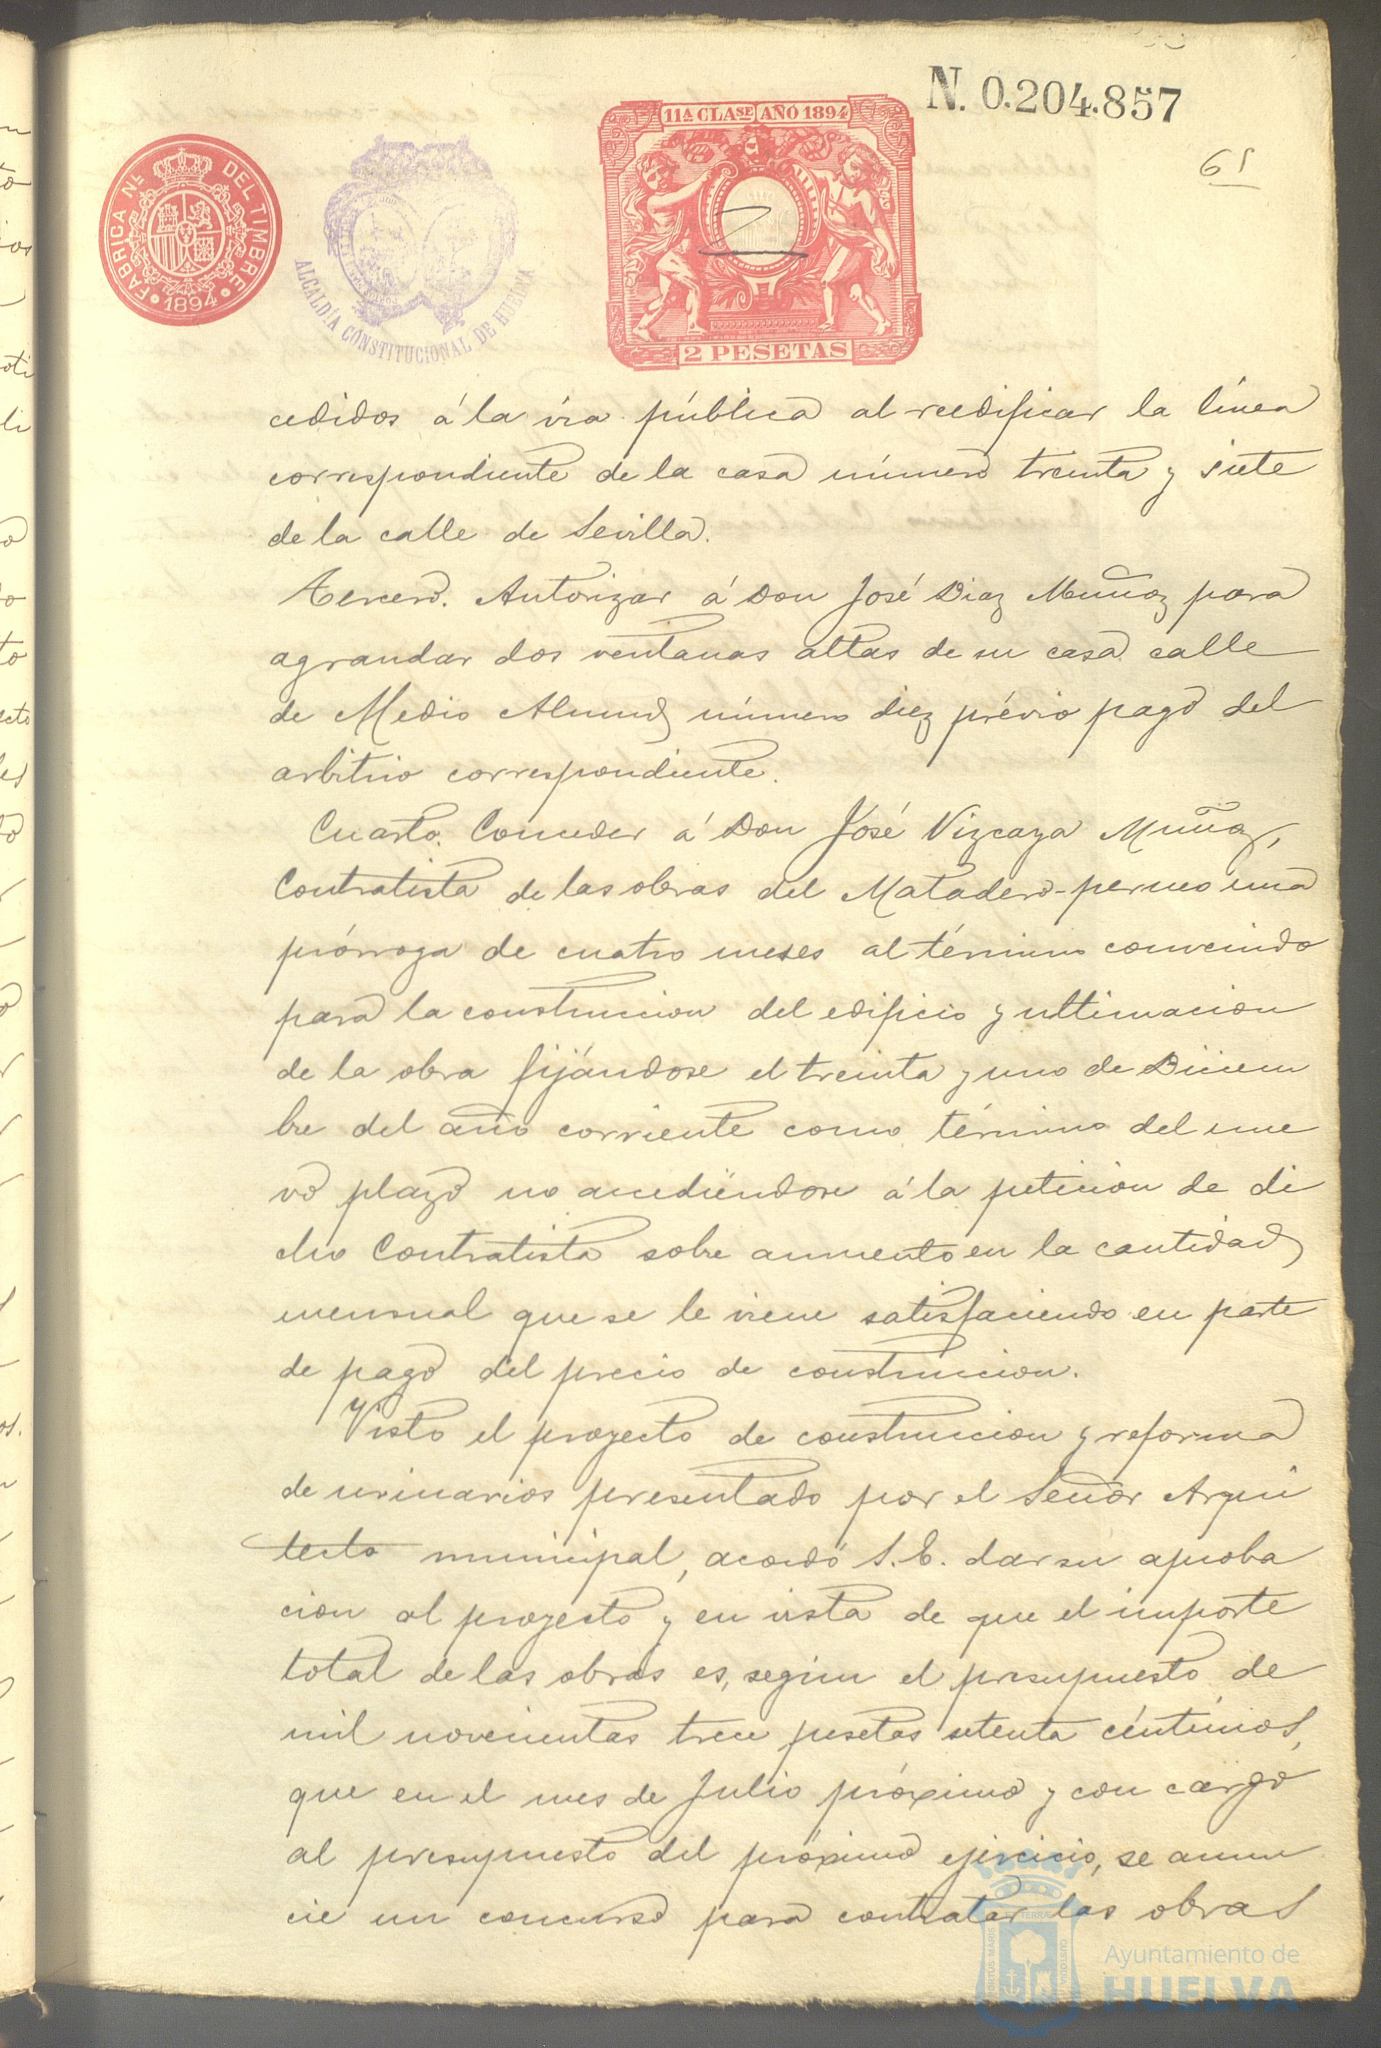 N. 0.204.857
11ª CLASE AÑO 1894
61
FABRICA NL. DEL TIMBRE
1894
ALCALDÍA CONSTITUCIONAL DE HUELVA
2 PESETAS
cedidos á la via pública al reedificar la línea
correspondiente de la casa número treinta y siete
de la calle de Sevilla.
Tercero. Autorizar á Don José Diaz Muñoz para
agrandar dos ventanas altas de su casa calle
de Medio Almud número diez prévio pago del
arbitrio correspondiente.
Cuarto. Conceder á Don José Vizcaya Muñoz,
Contratista de las obras del Matadero-perneo una
prórroga de cuatro meses al término convenido
para la construccion del edificio y ultimacion
de la obra fijándose el treinta y uno de Diciem
bre del año corriente como término del nue
vo plazo no accediéndose á la peticion de di
cho Contratista sobre aumento en la cantidad
mensual que se le viene satisfaciendo en parte
de pago del precio de construccion.
Visto el proyecto de construccion y reforma
de urinarios presentado por el Señor Arqui
tecto municipal, acordó S.E. dar su aproba
cion al proyecto y en vista de que el importe
total de las obras es, segun el presupuesto de
mil novecientas trece pesetas setenta céntimos,
que en el mes de Julio próximo y con cargo
al presupuesto del próximo ejercicio, se anun
cie un concurso para contratar las obras
Ayuntamiento de
HUELVA